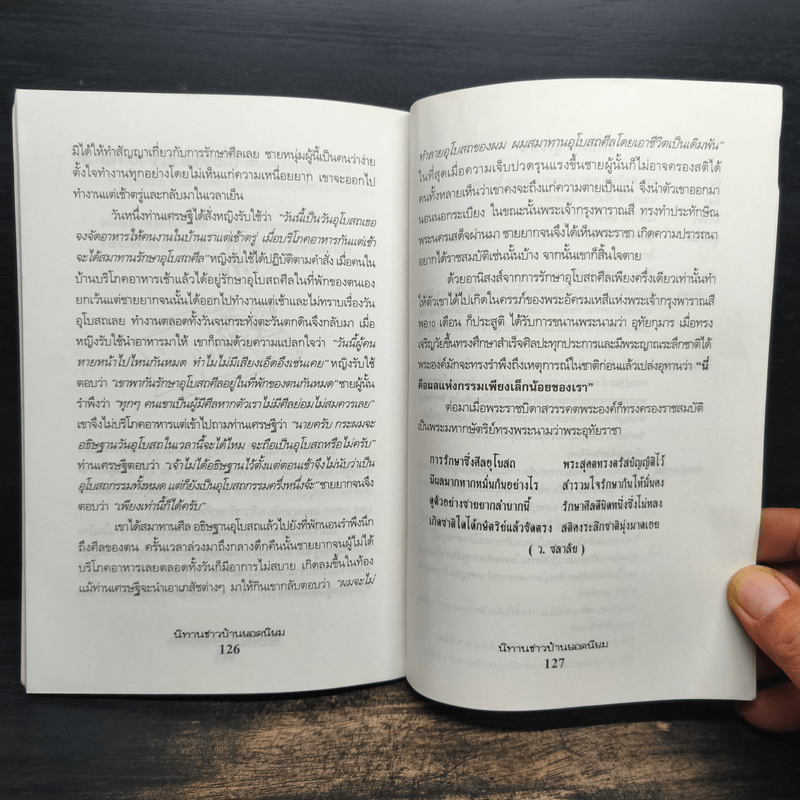 มิได้ให้ทำสัญญาเกี่ยวกับการรักษาศีลเลย ชายหนุ่มผู้นี้เป็นคนว่าง่าย
ตั้งใจทำงานทุกอย่างโดยไม่เห็นแก่ความเหนื่อยยาก เขาจะออกไป
ทำงานแต่เช้าตรู่และกลับมาในเวลาเย็น
วันหนึ่งท่านเศรษฐีได้สั่งหญิงรับใช้ว่า “วันนี้เป็นวันอุโบสถเธอ
จงจัดอาหารให้คนงานในบ้านเราแต่เช้าตรู่ เมื่อบริโภคอาหารกันแต่เช้า
จะได้สมาทานรักษาอุโบสถศีล” หญิงรับใช้ได้ปฏิบัติตามคำสั่ง เมื่อคนใน
บ้านบริโภคอาหารเช้าแล้วได้อยู่รักษาอุโบสถศีลในที่พักของตนเอง
ยกเว้นแต่ชายยากจนนั้นได้ออกไปทำงานแต่เช้าและไม่ทราบเรื่องวัน
อุโบสถเลย ทำงานตลอดทั้งวันจนกระทั่งตะวันตกดินจึงกลับมา เมื่อ
หญิงรับใช้นำอาหารมาให้ เขาก็ถามด้วยความแปลกใจว่า “วันนี้ผู้คน
หายหน้าไปไหนกันหมด ทำไมไม่มีเสียงเอ็ดอึงเช่นเคย” หญิงรับใช้
ตอบว่า “เขาพากันรักษาอุโบสถศีลอยู่ในที่พักของตนกันหมด” ชายผู้นั้น
รำพึงว่า “ทุกๆ คนเขาเป็นผู้มีศีลหากตัวเราไม่มีศีลย่อมไม่สมควรเลย”
เขาจึงไม่บริโภคอาหารแต่เข้าไปถามท่านเศรษฐีว่า “นายครับ กระผมจะ
อธิษฐานวันอุโบสถในเวลานี้จะได้ไหม จะถือเป็นอุโบสถหรือไม่ครับ”
ท่านเศรษฐีตอบว่า “เจ้าไม่ได้อธิษฐานไว้ตั้งแต่ตอนเช้าจึงไม่นับว่าเป็น
อุโบสถกรรมทั้งหมด แต่ก็ยังเป็นอุโบสถกรรมครึ่งหนึ่งจ้ะ” ชายยากจนจึง
ตอบว่า “เพียงเท่านี้ก็ได้ครับ”
เขาได้สมาทานศีล อธิษฐานอุโบสถแล้วไปยังที่พักนอนรำพึงนึก
ถึงศีลของตน ครั้นเวลาล่วงมาถึงกลางดึกคืนนั้นชายยากจนผู้ไม่ได้
บริโภคอาหารเลยตลอดทั้งวันก็มีอาการไม่สบาย เกิดลมขึ้นในท้อง
แม้ท่านเศรษฐีจะนำเอาเภสัชต่างๆ มาให้กินเขากลับตอบว่า “ผมจะไม่
นิทานชาวบ้านยอดนิยม
126
ทำลายอุโบสถของผม ผมสมาทานอุโบสถศีลโดยเอาชีวิตเป็นเดิมพัน”
ในที่สุดเมื่อความเจ็บปวดรุนแรงขึ้นชายผู้นั้นก็ไม่อาจครองสติได้
คนทั้งหลายเห็นว่าเขาคงจะถึงแก่ความตายเป็นแน่ จึงนำตัวเขาออกมา
นอนนอกระเบียง ในขณะนั้นพระเจ้ากรุงพาราณสี ทรงทำประทักษิณ
พระนครเสด็จผ่านมา ชายยากจนจึงได้เห็นพระราชา เกิดความปรารถนา
อยากได้ราชสมบัติเช่นนั้นบ้าง จากนั้นเขาก็สิ้นใจตาย
ด้วยอานิสงส์จากการรักษาอุโบสถศีลเพียงครึ่งเดียวเท่านั้นทำ
ให้ตัวเขาได้ไปเกิดในครรภ์ของพระอัครมเหสีแห่งพระเจ้ากรุงพาราณสี
พอ10 เดือน ก็ประสูติ ได้รับการขนานพระนามว่า อุทัยกุมาร เมื่อทรง
เจริญวัยขึ้นทรงศึกษาสำเร็จศิลปะทุกประการและมีพระญาณระลึกชาติได้
พระองค์มักจะทรงรำพึงถึงเหตุการณ์ในชาติก่อนแล้วเปล่งอุทานว่า “นี่
คือผลแห่งกรรมเพียงเล็กน้อยของเรา”
ต่อมาเมื่อพระราชบิดาสวรรคตพระองค์ก็ทรงครองราชสมบัติ
เป็นพระมหากษัตริย์ทรงพระนามว่าพระอุทัยราชา
การรักษาซึ่งศีลอุโบสถ พระสุคตทรงตรัสบัญญัติไว้
มีผลมากหากหมั่นกันอย่างไร สำรวมใจรักษากันให้มั่นคง
ดูตัวอย่างชายยากลำบากนี้ รักษาศีลดีนิดหนึ่งซึ่งไม่หลง
เกิดชาติใดได้กษัตริย์แล้วชัดตรง สติคงระลึกชาติมุ่งมาดเอย
( ว. ชลาลัย )
นิทานชาวบ้านยอดนิยม
127